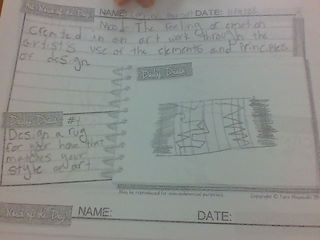 Art Word of the Day NAME: DATE:
Mood: The feeling or emotion
created in an art work through the
artists use of the elements and principles
of design
Daily Draw
Daily Draw #1
Design a rug
for your home that
matches your
style or art
May be reproduced for non-commercial purposes. Copyright ©
Word of the Day NAME: DATE: